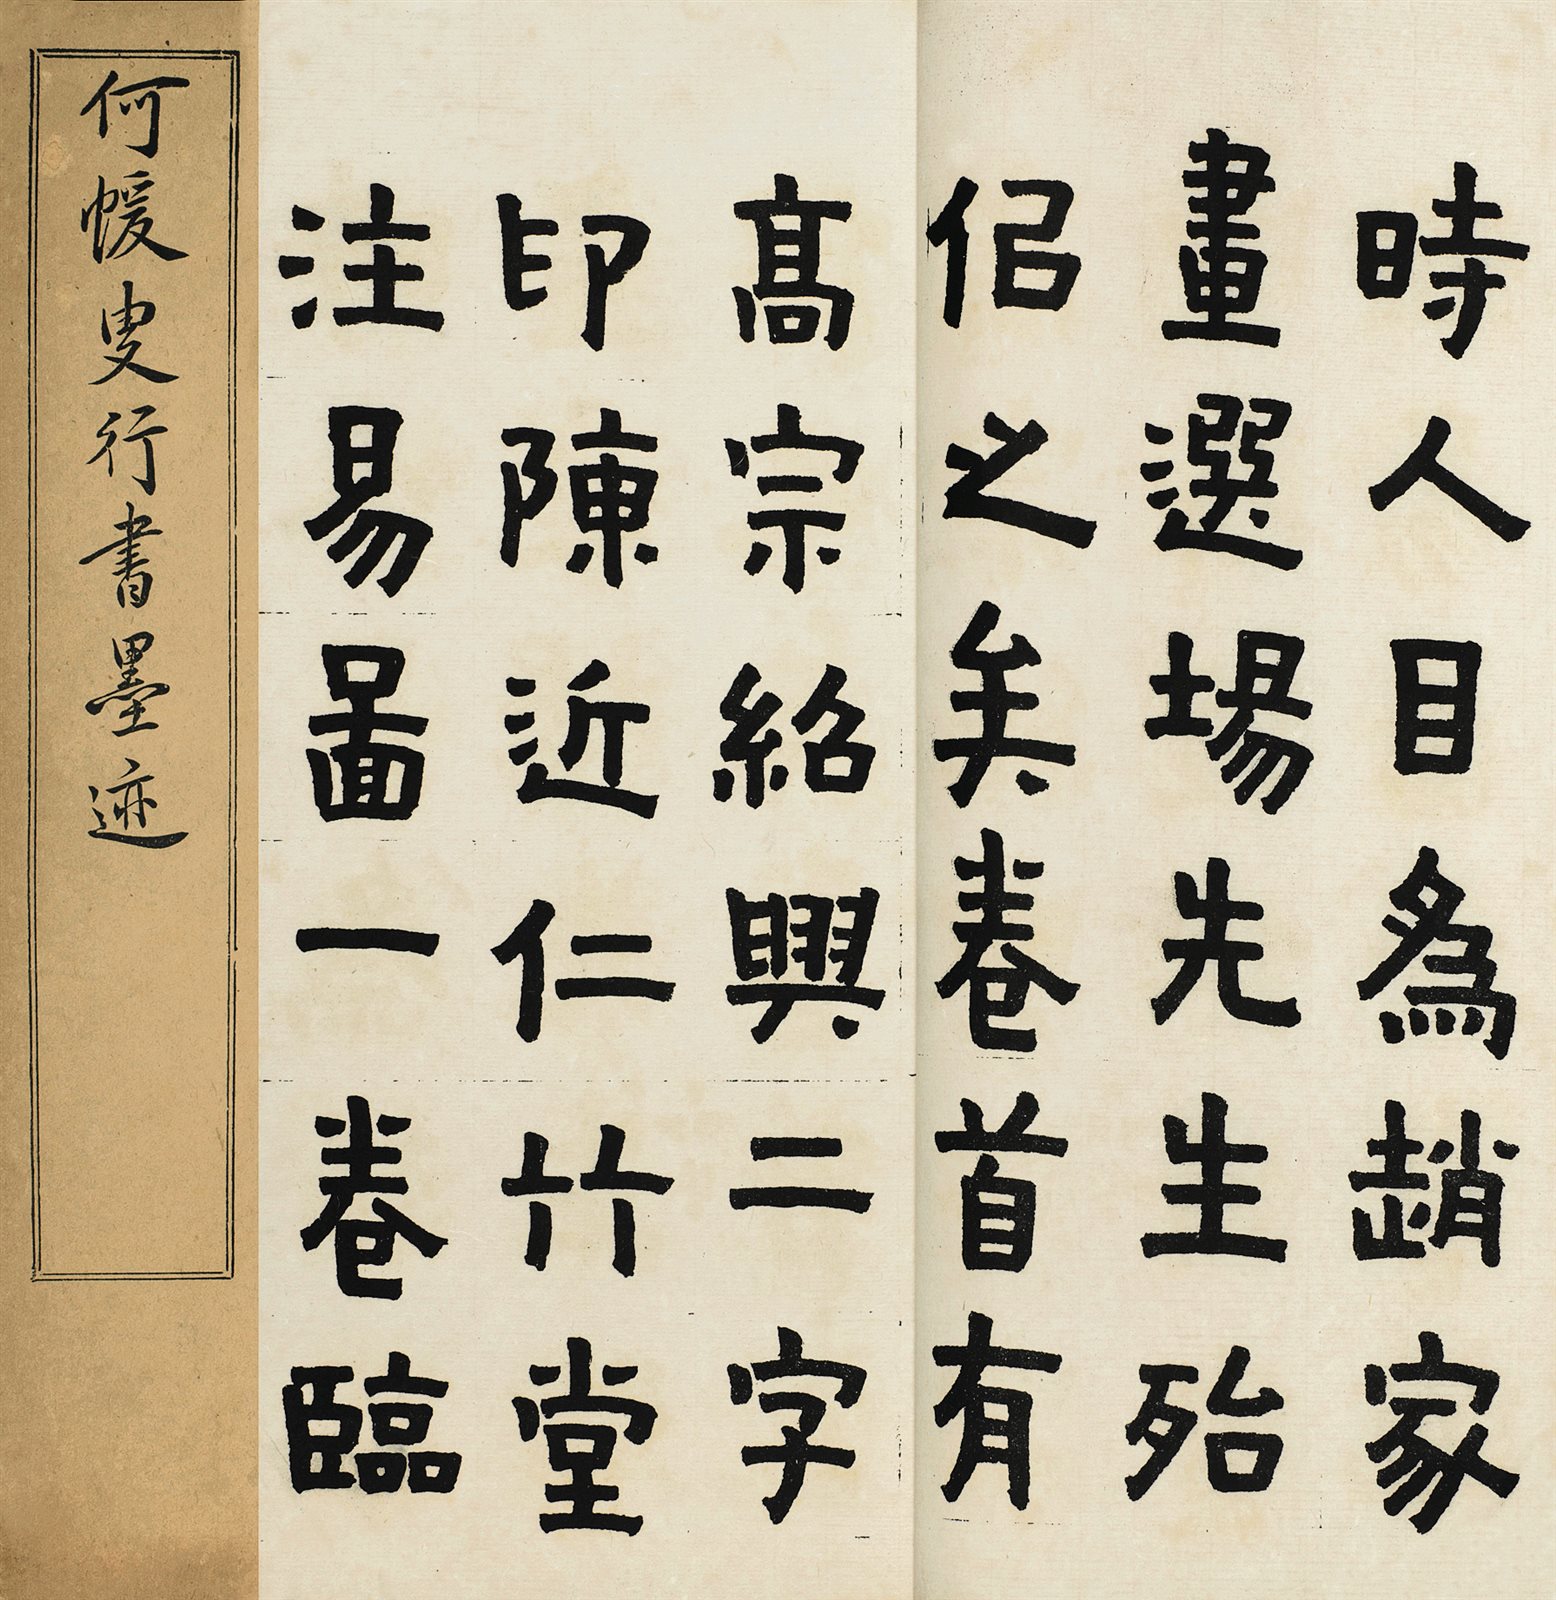 時人目為趙家
畫選場先生殆
侶之矣卷首有
高宗紹興二字
印陳近仁竹堂
注易圖一卷臨
何蝯叟行書墨迹